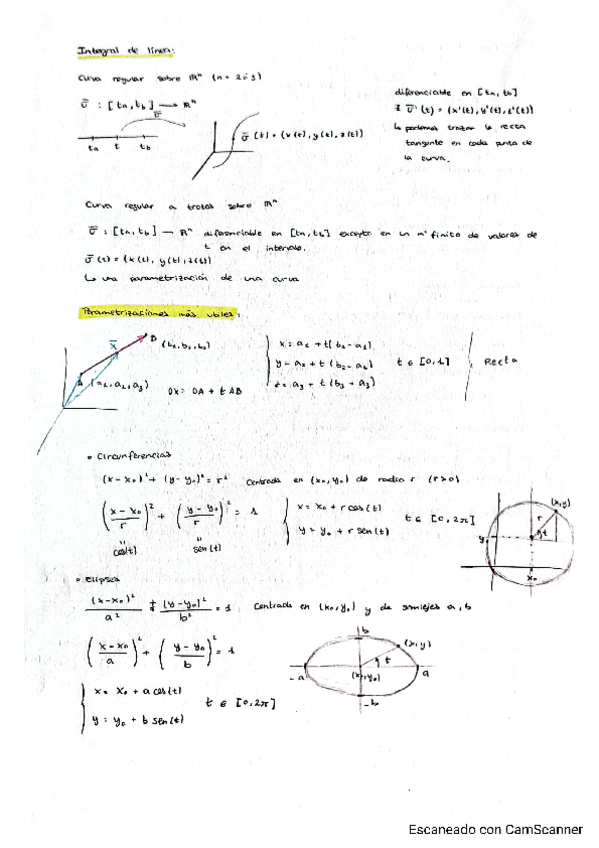 Integral de línea:
Curva regular sobre ℝⁿ (n = 2 ó 3)
σ̄ : [ta, tb] → ℝⁿ
σ̄
ta t tb
σ̄(t) = (x(t), y(t), z(t))
diferenciable en [ta, tb]
∃ σ̄'(t) = (x'(t), y'(t), z'(t))
↳ podemos trazar la recta
tangente en cada punto de
la curva.
Curva regular a trozos sobre ℝⁿ
σ̄ : [ta, tb] → ℝⁿ diferenciable en [ta, tb] excepto en un nº finito de valores de
t en el intervalo.
σ̄(t) = (x(t), y(t), z(t))
↳ una parametrización de una curva
Parametrizaciones más útiles:
X̄ B (b₁, b₂, b₃)
A (a₁, a₂, a₃)
OX = OA + t AB
x = a₁ + t(b₁ - a₁)
y = a₂ + t(b₂ - a₂)
z = a₃ + t(b₃ - a₃)
t ∈ [0, 1]
Recta
• Circunferencias
(x - x₀)² + (y - y₀)² = r² Centrada en (x₀, y₀) de radio r (r>0)
((x - x₀)/r)² + ((y - y₀)/r)² = 1
cos(t) sen(t)
x = x₀ + r cos(t)
y = y₀ + r sen(t)
t ∈ [0, 2π]
(x, y)
r
t
y₀
x₀
• Elipses
(x - x₀)²/a² + (y - y₀)²/b² = 1 Centrada en (x₀, y₀) y de semiejes a, b
((x - x₀)/a)² + ((y - y₀)/b)² = 1
x = x₀ + a cos(t)
y = y₀ + b sen(t)
t ∈ [0, 2π]
b
(x, y)
t
-a (x₀, y₀) a
-b
Escaneado con CamScanner